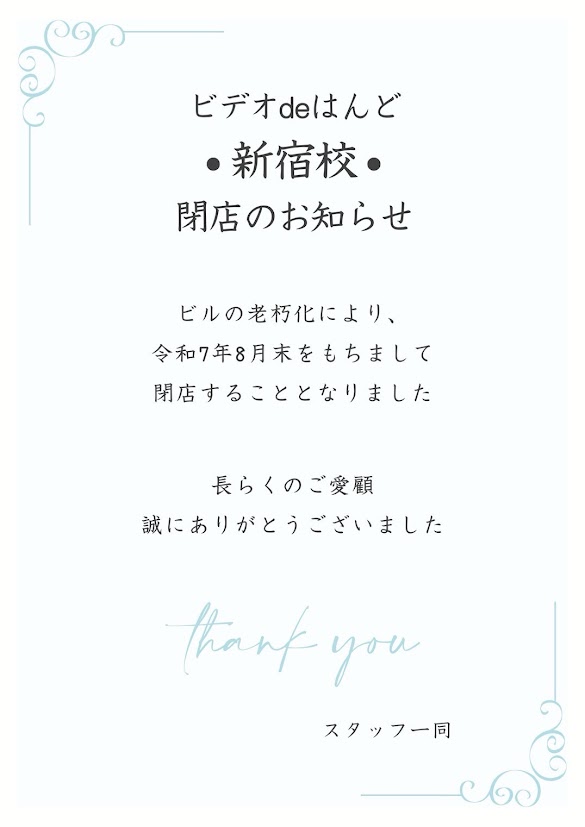 ビデオdeはんど
•新宿校•
閉店のお知らせ
ビルの老朽化により、
令和7年8月末をもちまして
閉店することとなりました
長らくのご愛顧
誠にありがとうございました
thank you
スタッフ一同